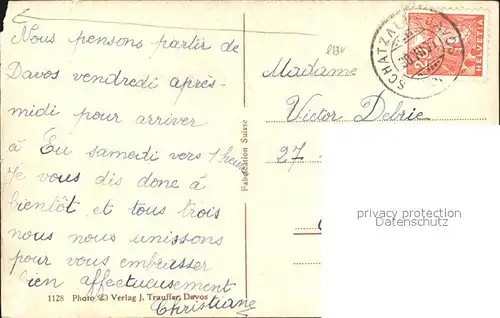 Nous pensons partir de
Davos vendredi après-
midi pour arriver
à Eu samedi vers 1 heure
Je vous dis donc à
bientôt et tous trois
nous nous unissons
pour vous embrasser
bien affectueusement
Christiane
1128 Photo & Verlag J. Trauffer, Davos
Fabrication Suisse
Madame
Victor Debrie
27
SCHATZALP-DAVOS
HELVETIA
privacy protection
watermark